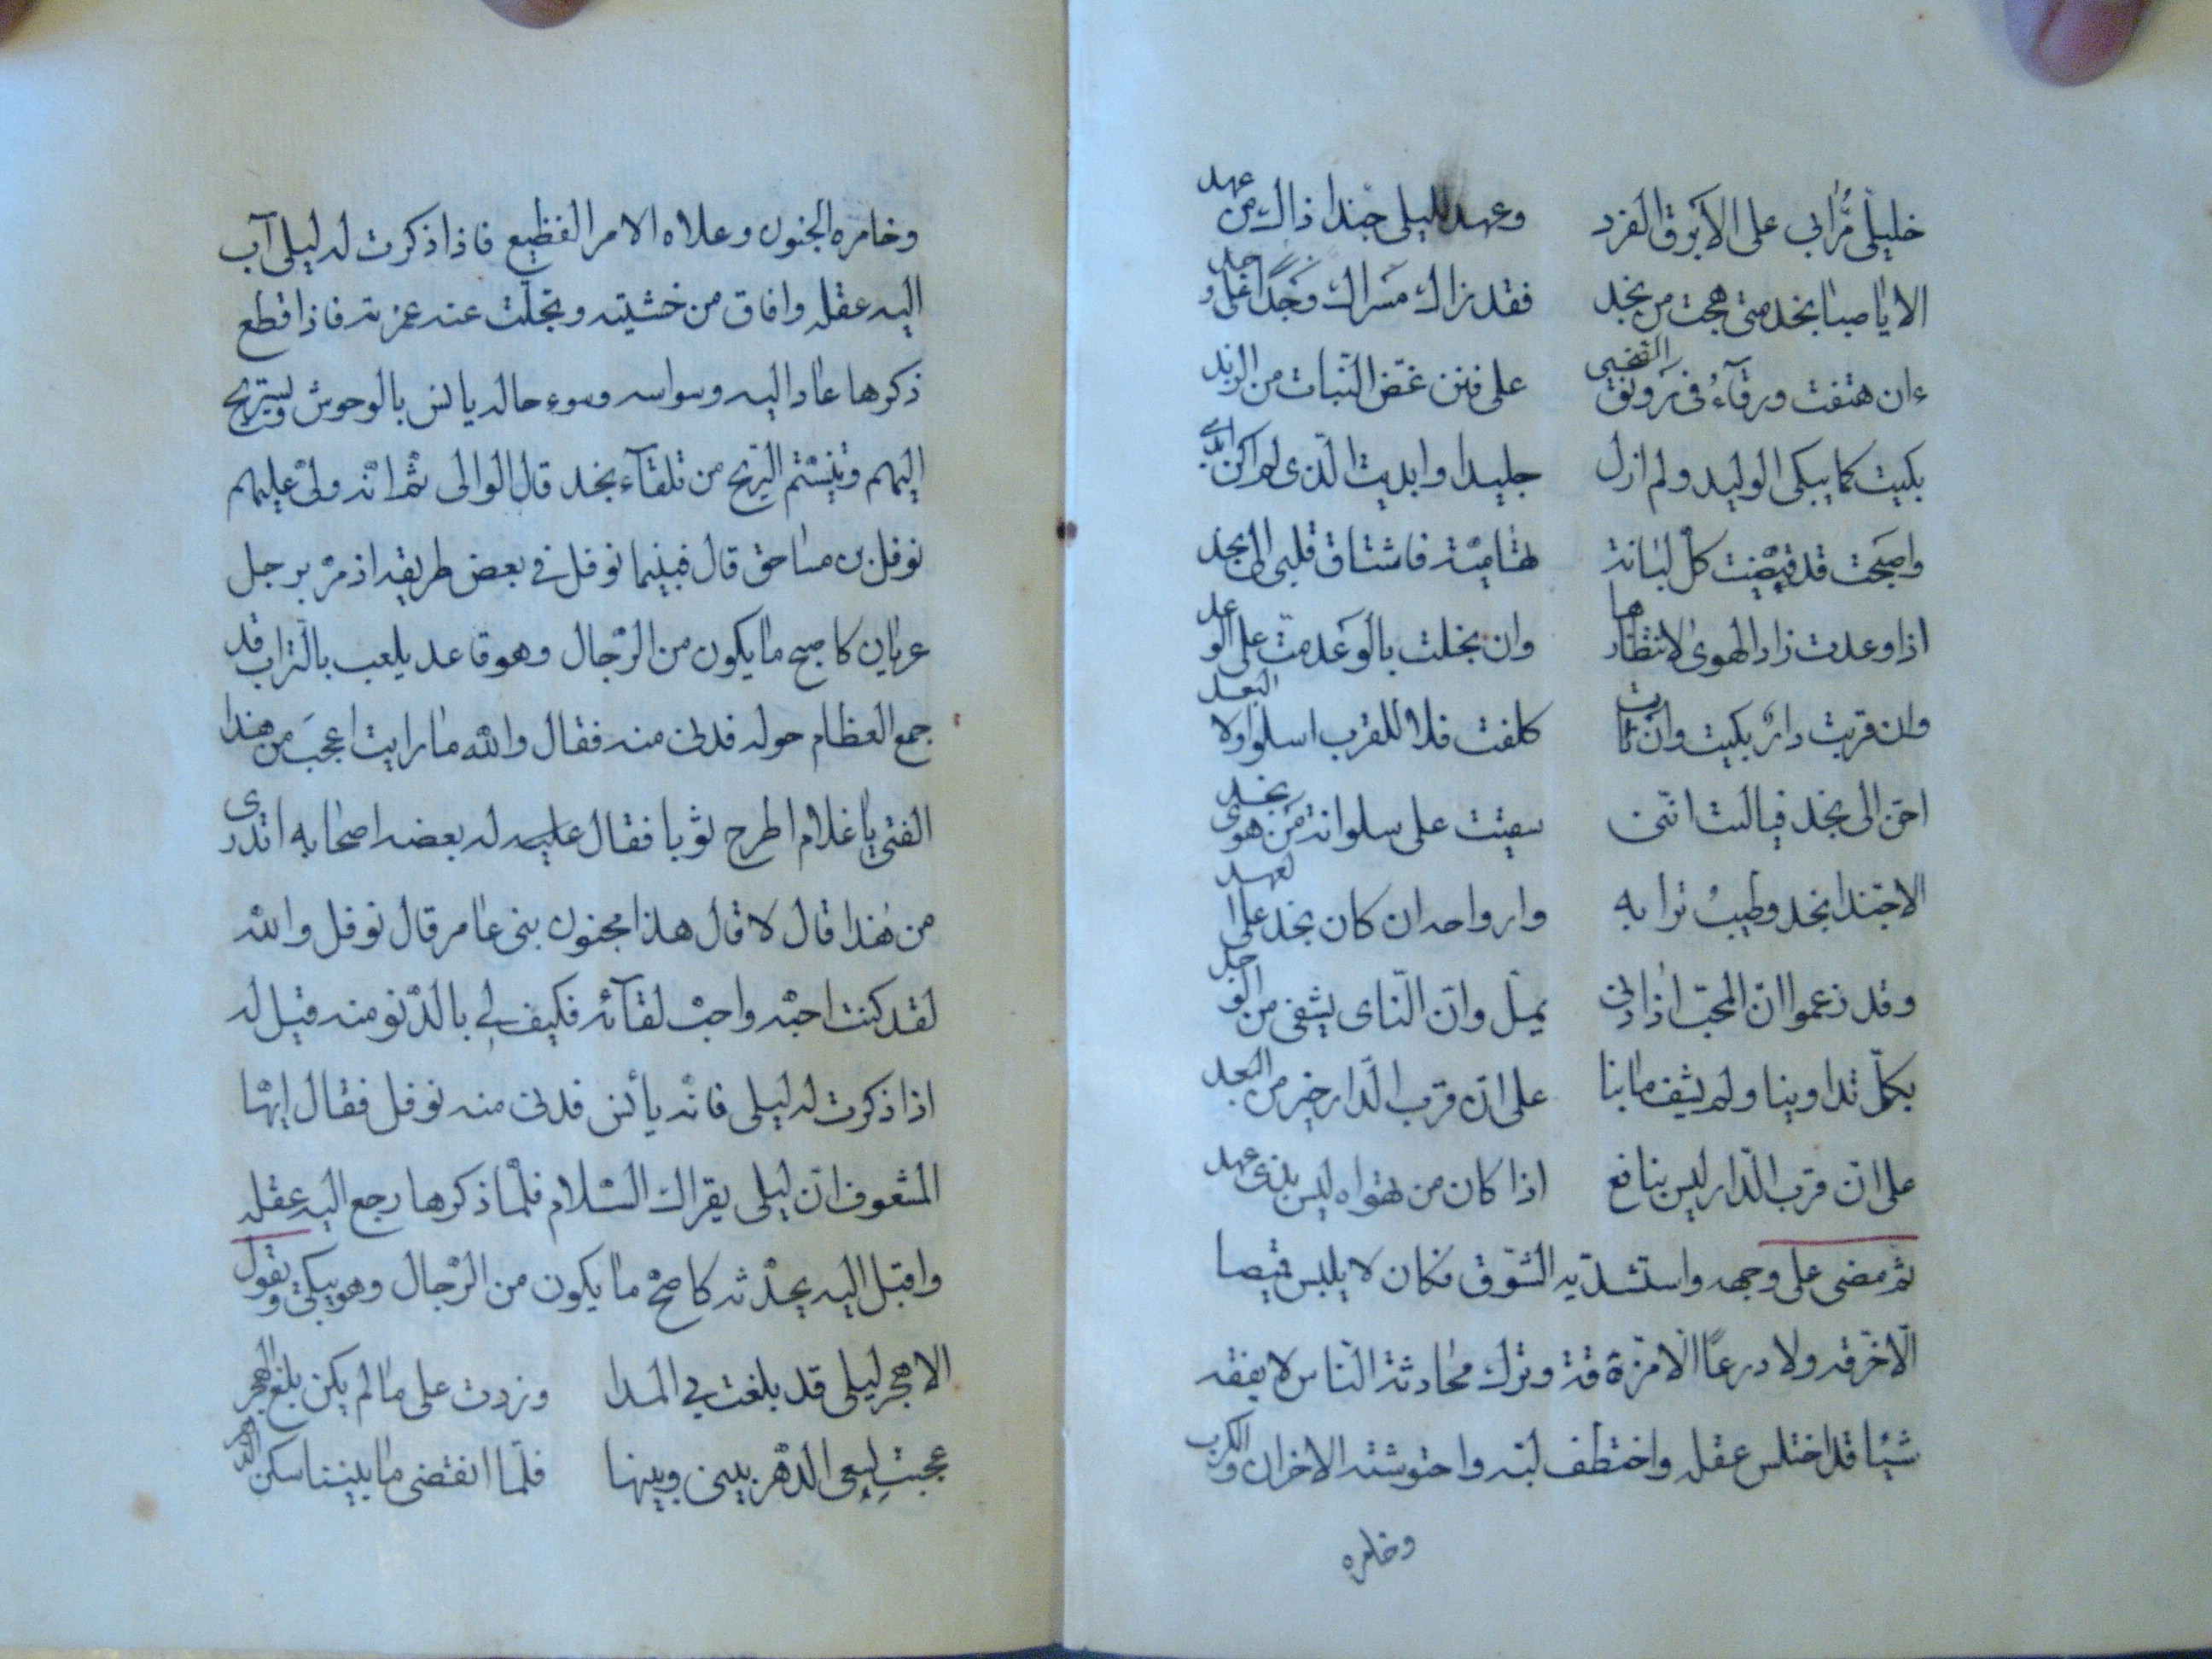 خليلىّ مُرّا بى على الأبرق الفرد وعهد لليلى حبّذا ذاك من عهد
الا يا صبا نجد متى هجت من نجد فقد زاد مسراك وجدًا على وجد
ءان هتفت ورقآءُ فى رَونق الضحى على فنن غضّ النّبات من الرند
بكيت كما يبكى الوليد ولم ازل جليدا وابديت الّذى لم اكن ابدى
واصبحت قد قضّيت كلّ لبانة تهاميّة فاشتاق قلبى الى نجد
اذا وعدت زاد الهوى لانتظارها وان بخلت بالوَعد متّ على الوعد
وان قربت دارٌ بكيت وان نأت كلفت فلا للقرب اسلو ولا البعد
احنّ الى نجد فياليت انّنى سقيت على سلوانة من هوى نجد
الا حبّذا نجد وطيبُ ترابه وارواحه ان كان نجد على العهد
وقد زعموا انّ المحبّ اذا دنى يملّ وانّ النّاى يشفى من الوجد
بكلّ تداوينا ولم يشف ما بنا على انّ قرب الدّار خير من البعد
على انّ قرب الدّار ليس بنافع اذا كان من تهواه ليس بذى عهد
ثم مضى على وجهه واستشدّ به الشّوق فكان لا يلبس قميصا
الّا خرّقه ولا درعًا الّا مزّقة وترك محادثة النّاس لا يفقه
شيئا قد اختلس عقله واختطف لبّه واحتوشته الاحزان والكرب
وخامره
وخامره الجنون وعلاه الامر الفظيع فاذا ذكرت له ليلى آب
اليه عقله وافاق من خشيته وتجلّت عنه غمزته فاذا قطع
ذكرها عاد اليه وسواسه وسوء حاله يانس بالوحوش ويستريح
اليهم ويتنسّم الرّيح من تلقآء نجد قال الوالى ثمّ انّه ولىّ عليهم
نوفل بن مساحق قال فبينما نوفل فى بعض طريقه اذ مرّ برجل
عريان كاصبح ما يكون من الرّجال وهو قاعد يلعب بالتّراب قد
جمع العظام حوله فدنى منه فقال واللّه ما رايت اعجبَ من هذا
الفتى يا غلام اطرح ثوبا فقال عليه له بعضه اصحابه اتدرى
من هذا قال لا قال هذا مجنون بنى عامر قال نوفل واللّه
لقد كنت احبّه واحبّ لقآئه فكيف لى بالدّنو منه قيل له
اذا ذكرت له ليلى فانّه يأنس فدنى منه نوفل فقال ايّها
المشعوف انّ ليلى يقراك السّلام فلمّا ذكرها رجع اليه عقله
واقبل اليه يحدّثه كاصحّ ما يكون من الرّجال وهو يبكى ويقول
الا هجر ليلى قد بلغت بى المدا وزدت على ما لم يكن بلغ الهجر
عجبت لسعى الدّهر بينى وبينها فلمّا انقضى ما بيننا سكن الدّهر